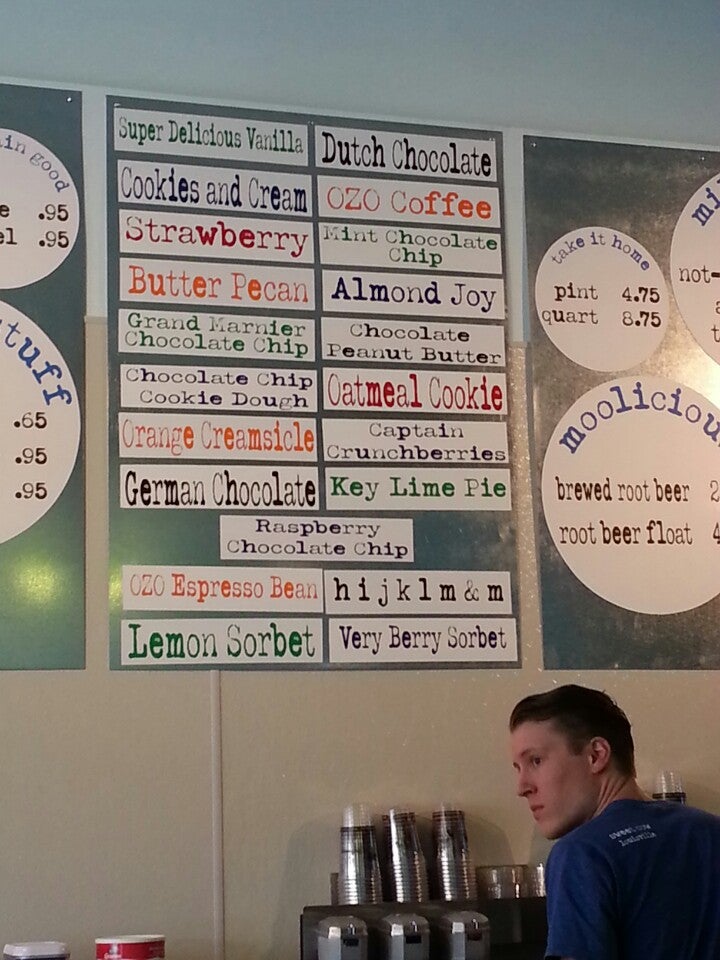 .95
.95
.65
.95
.95
Super Delicious Vanilla
Dutch Chocolate
Cookies and Cream
OZO Coffee
Strawberry
Mint Chocolate
Chip
Butter Pecan
Almond Joy
Grand Marnier
Chocolate Chip
Chocolate
Peanut Butter
Chocolate Chip
Cookie Dough
Oatmeal Cookie
Orange Creamsicle
Captain
Crunchberries
German Chocolate
Key Lime Pie
Raspberry
Chocolate Chip
OZO Espresso Bean
h i j k l m & m
Lemon Sorbet
Very Berry Sorbet
take it home
pint 4.75
quart 8.75
brewed root beer
root beer float